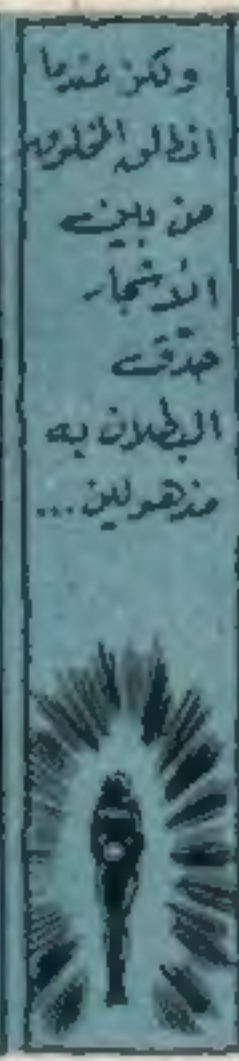 ولكن عندما
انطلق المخلوق
من بين
الأشجار
حدّق
البطلان به
مذهولين...